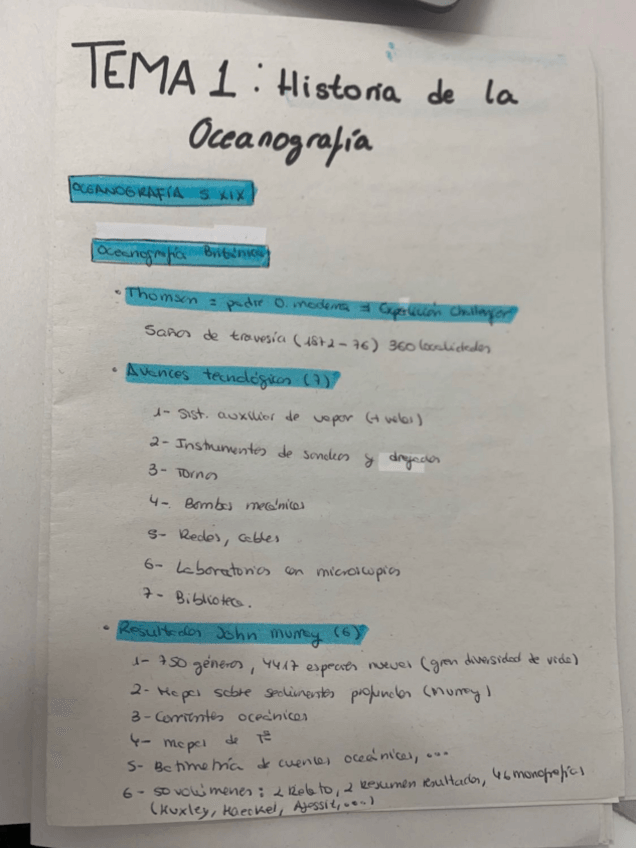 TEMA 1 : Historia de la
Oceanografía
OCEANOGRAFÍA S XIX
Oceanografía Británica
• Thomson = padre O. moderna ⇒ Expedición Challenger
5 años de travesía (1872-76) 360 localidades
• Avances tecnológicos (7)
1- Sist. auxiliar de vapor (+ velas)
2- Instrumentos de sondeos y dragados
3- Tornos
4-. Bombas mecánicas
5- Redes, cables
6- Laboratorios con microscopios
7- Biblioteca.
• Resultados John Murray (6)
1- 750 géneros, 4417 especies nuevas (gran diversidad de vida)
2- Mapas sobre sedimentos profundos (Murray)
3- Corrientes oceánicas
4- mapas de Tª
5- Batimetría de cuencas oceánicas, ...
6- 50 volúmenes: 2 Relato, 2 Resumen resultados, 46 monografías
(Huxley, Haeckel, Agassiz, ...)